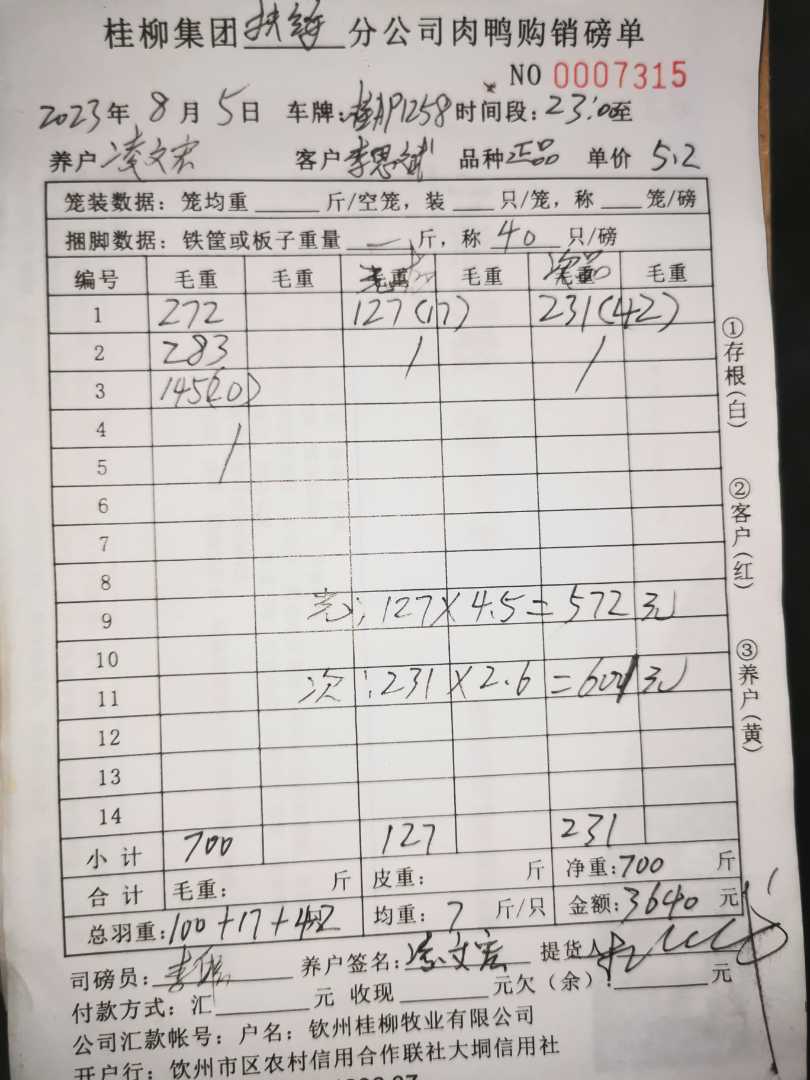 桂柳集团扶绥分公司肉鸭购销磅单
NO 0007315
2023年8月5日 车牌:桂AP1258 时间段:23:00至
养户凌文宏 客户李思斌 品种正品 单价5.2
笼装数据:笼均重 斤/空笼,装 只/笼,称 笼/磅
捆脚数据:铁筐或板子重量 一 斤,称 40 只/磅
编号 毛重 毛重 毛重 毛重 次品 毛重
1 272 127(17) 231(42)
2 283 / /
3 145(20)
4 /
5
6
7
8
9 光:127×4.5=572元
10
11 次:231×2.6=601元
12
13
14
小计 700 127 231
合计 毛重: 斤 皮重: 斤 净重:700 斤
总羽重:100+17+42 均重:7 斤/只 金额:3640元
司磅员: 养户签名:凌文宏 提货人
付款方式:汇 元 收现 元欠(余): 元
公司汇款帐号:户名:钦州桂柳牧业有限公司
开户行:钦州市区农村信用合作联社大垌信用社
①存根(白)
②客户(红)
③养户(黄)